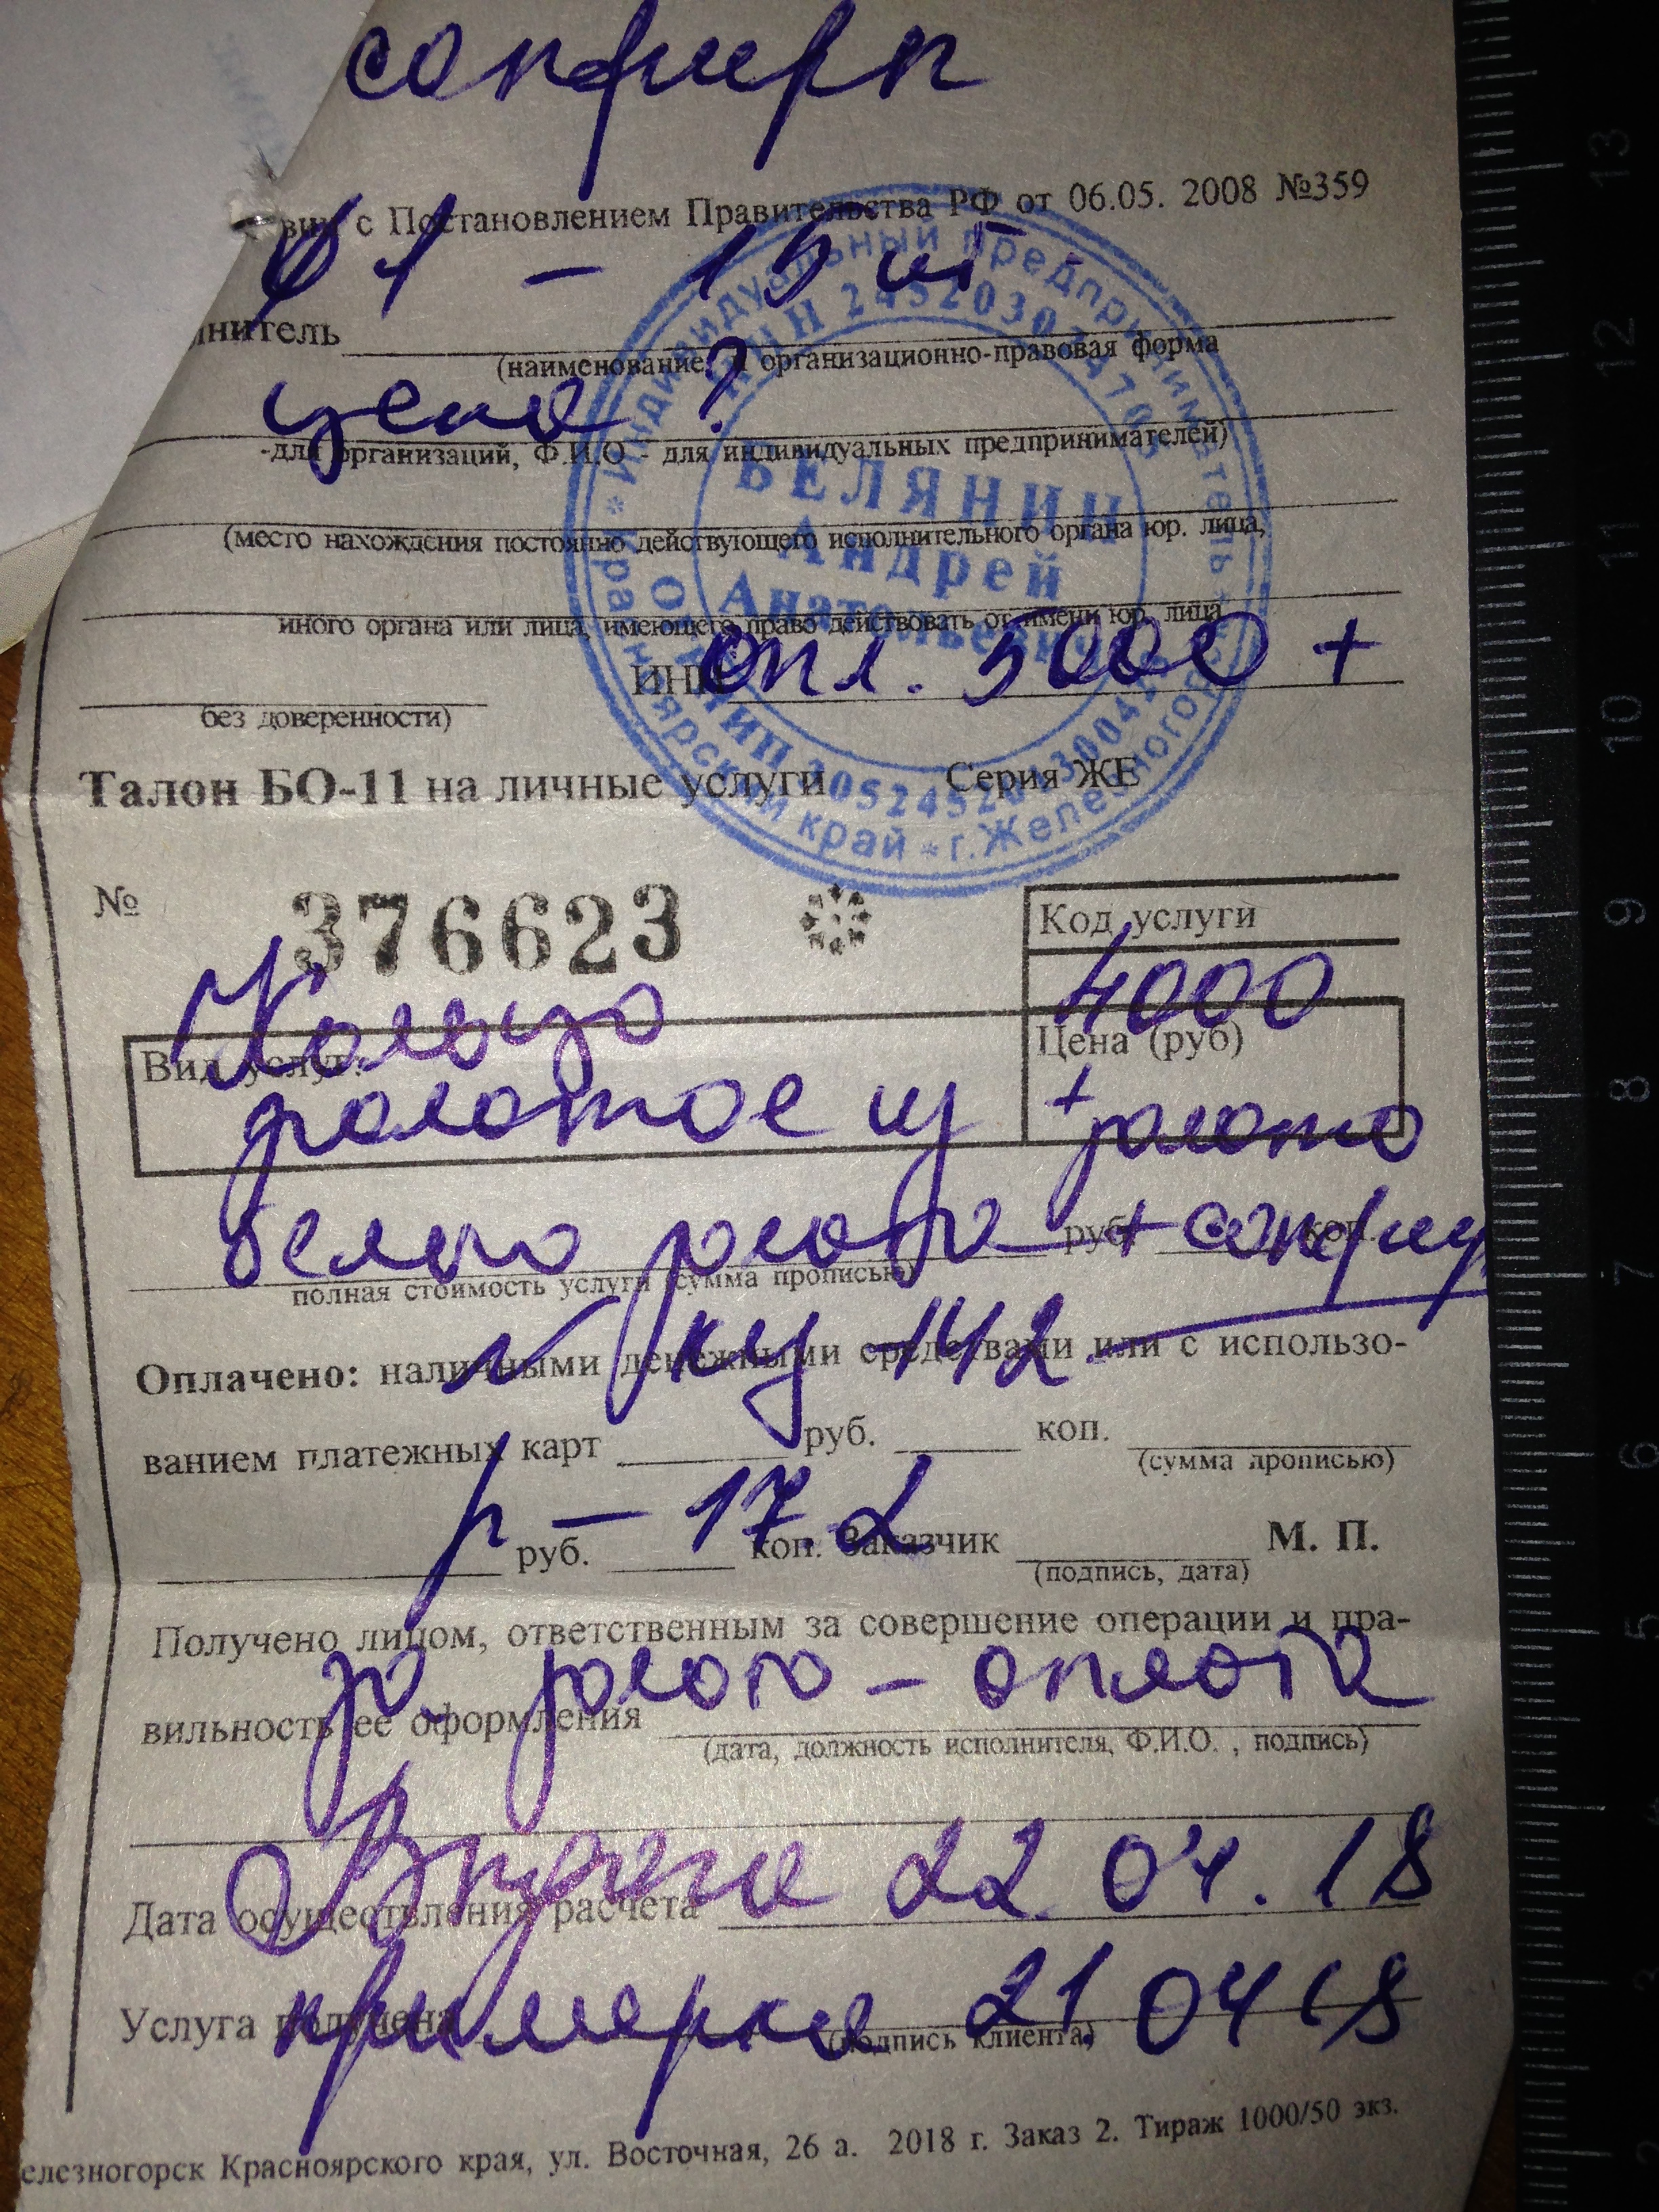 сапфиры
с Постановлением Правительства РФ от 06.05. 2008 №359
ф 1 – 15 шт
нитель
(наименование, организационно-правовая форма
цена ?
-для организаций, Ф.И.О - для индивидуальных предпринимателей)
(место нахождения постоянно действующего исполнительного органа юр. лица,
иного органа или лица, имеющего право действовать от имени юр. лица
ИНН опл. 5000 +
без доверенности)
Индивидуальный предприниматель
ИНН
БЕЛЯНИН
Андрей
Анатольевич
Красноярский край * г.Железногорск
Талон БО-11 на личные услуги Серия ЖЕ
№ 376623 Код услуги
Кольцо 4000
Вид услуг: Цена (руб)
золотое из + золото
белого золота руб. + сапфир коп.
полная стоимость услуги (сумма прописью)
142
Оплачено: наличными денежными средствами или с использо-
ванием платежных карт руб. коп.
(сумма прописью)
р – 17.2
руб. коп. Заказчик М. П.
(подпись, дата)
Получено лицом, ответственным за совершение операции и пра-
за золото – оплата
вильность ее оформления
(дата, должность исполнителя, Ф.И.О. , подпись)
22 04. 18
Дата осуществления расчета
примерка 21 04 18
Услуга получена
(подпись клиента)
елезногорск Красноярского края, ул. Восточная, 26 а. 2018 г. Заказ 2. Тираж 1000/50 экз.
13
12
11
10
9
8
7
6
5
3
2